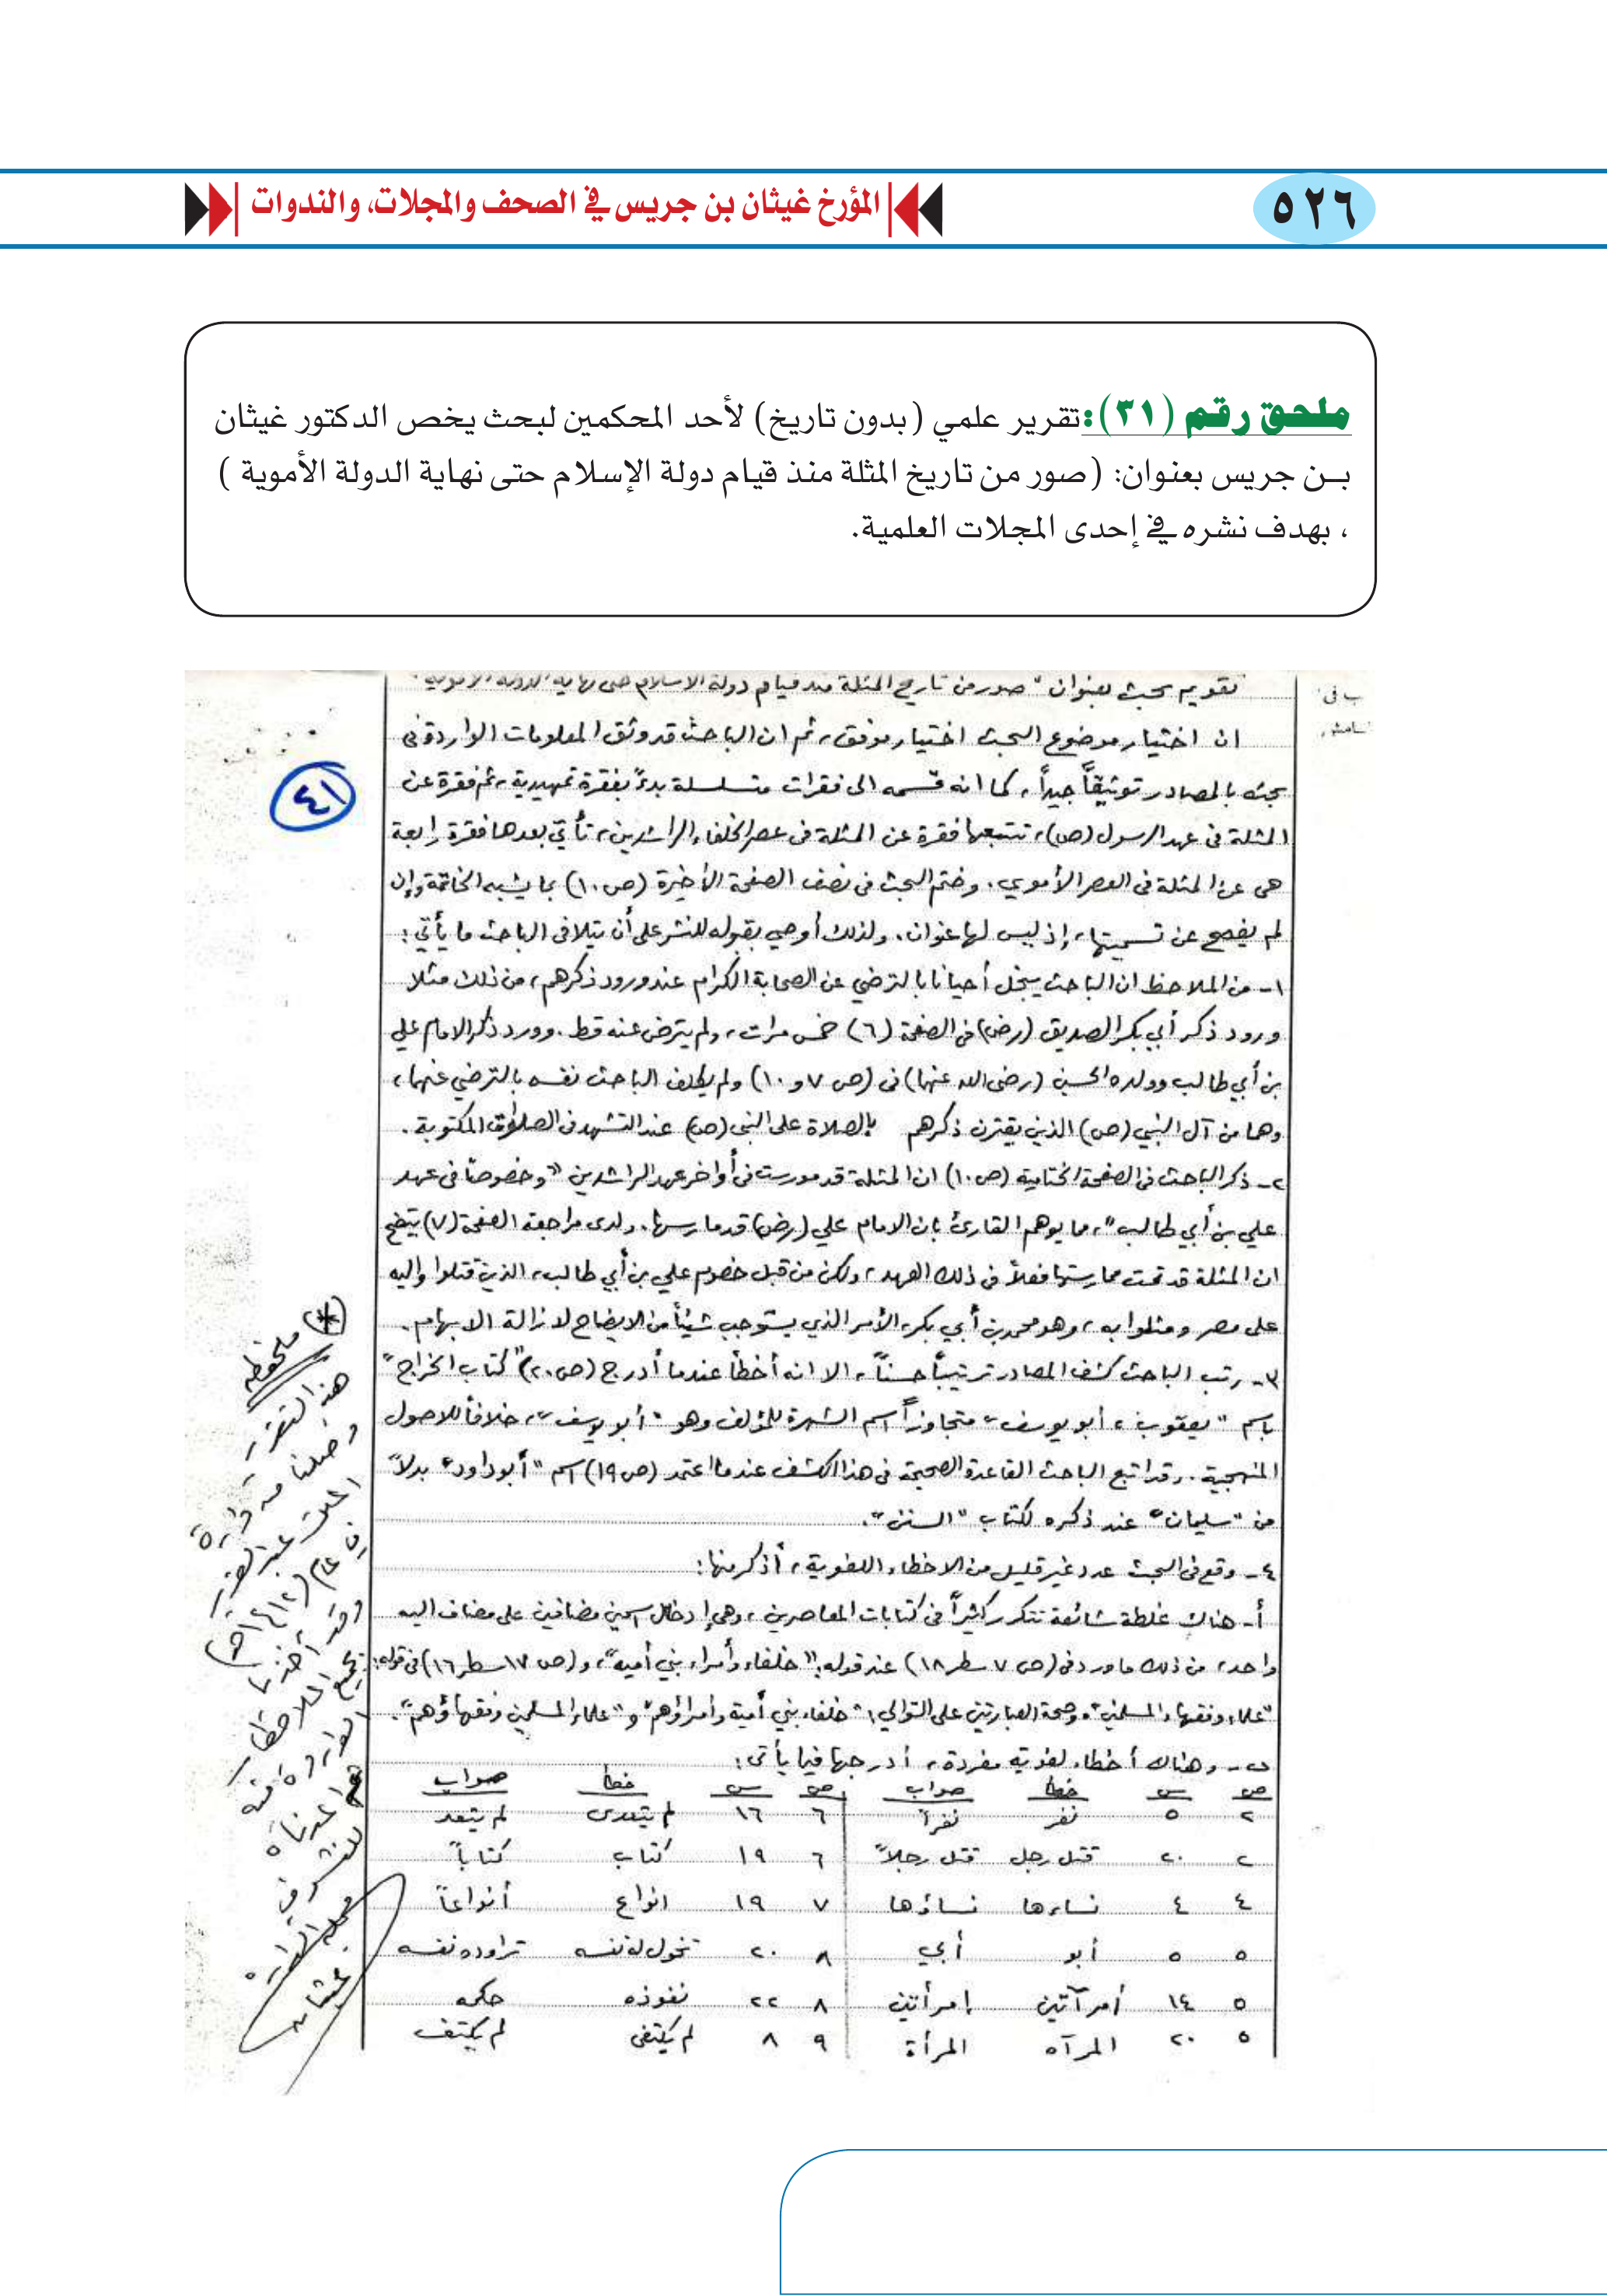 ٥٢٦
المؤرخ غيثان بن جريس في الصحف والمجلات، والندوات
ملحق رقم (٣١): تقرير علمي (بدون تاريخ) لأحد المحكمين لبحث يخص الدكتور غيثان
بـن جريس بعنوان: (صور من تاريخ المثلة منذ قيام دولة الإسلام حتى نهاية الدولة الأموية )
، بهدف نشره في إحدى المجلات العلمية.
تقويم بحث بعنوان "صور من تاريخ المثلة منذ قيام دولة الاسلام حتى نهاية الدولة الاموية"
ان اختيار موضوع البحث اختيار موفق، ثم ان الباحث قد وثق المعلومات الواردة في
بحثه بالمصادر توثيقاً جيداً، كما انه قسمه الى فقرات متسلسلة بدءً بفقرة تمهيدية، ثم فقرة عن
المثلة في عهد الرسول (ص)، تتبعها فقرة عن المثلة في عصر الخلفاء الراشدين، تأتي بعدها فقرة رابعة
هى عن المثلة في العصر الأموي. وختم البحث في نصف الصفحة الأخيرة (ص١٠) بما يشبه الخاتمة وإن
لم يفصح عن تسميتها، إذ ليس لها عنوان. ولذلك أوصي بقبوله للنشر على أن يتلافى الباحث ما يأتي:
١- من الملاحظ ان الباحث يبخل أحيانا بالترضي عن الصحابة الكرام عند ورود ذكرهم، من ذلك مثلا
ورود ذكر أبي بكر الصديق (رض) في الصفحة (٦) خمس مرات، ولم يترض عنه قط. وورد ذكر الامام علي
بن أبي طالب وولده الحسين (رضى الله عنهما) في (ص ٧ و ١٠) ولم يكلف الباحث نفسه بالترضي عنهما،
وهما من آل النبي (ص) الذين يقترن ذكرهم بالصلاة على النبي (ص) عند التشهد في الصلوات المكتوبة.
٢- ذكر الباحث في الصفحة الختامية (ص١٠) ان المثلة قد مورست في أواخر عهد الراشدين "وخصوصاً في عهد
علي بن أبي طالب"، مما يوهم القارئ بان الامام علي (رض) قد مارسها. ولدى مراجعة الصفحة (٧) يتضح
ان المثلة قد تمت ممارستها فعلاً في ذلك العهد، ولكن من قبل خصوم علي بن أبي طالب، الذين قتلوا واليه
على مصر ومثلوا به، وهو محمد بن أبي بكر، الأمر الذي يستوجب شيئاً من الايضاح لازالة الابهام.
٣- رتب الباحث كشف المصادر ترتيباً حسناً، الا انه أخطأ عندما أدرج (ص٢٠) "كتاب الخراج"
باسم "يعقوب، أبو يوسف" متجاوزاً اسم الشهرة للمؤلف وهو "أبو يوسف"، خلافاً للاصول
المنهجية. وقد اتبع الباحث القاعدة الصحيحة في هذا الكشف عندما اعتمد (ص١٩) اسم "أبو داود" بدلاً
من "سليمان" عند ذكره لكتاب "السنن".
٤- وقع في البحث عدد غير قليل من الاخطاء اللغوية، أذكر منها:
أ- هناك غلطة شائعة تتكرر كثيراً في كتابات المعاصرين، وهي إدخال اسمين مضافين على مضاف اليه
واحد، من ذلك ما ورد في (ص ٧ سطر ١٨) عند قوله: "خلفاء وأمراء بني أمية"، و(ص ١٧ سطر ١٦) في قوله:
"علماء وفقهاء المسلمين". وصحة العبارتين على التوالي: "خلفاء بني أمية وأمراؤهم" و"علماء المسلمين وفقهاؤهم".
ب- وهناك أخطاء لغوية مفردة، أدرجها فيما يأتي:
ص س خطأ صواب ص س خطأ صواب
٢ ٥ نفر نفراً ٦ ١٦ لم يتعدى لم يتعد
٢ ٢٠ قتل رجل قتل رجلاً ٦ ١٩ كتاب كتاباً
٤ ٤ نساءها نساؤها ٧ ١٩ انواع أنواعاً
٥ ٥ أبو أبي ٨ ٢٠ تخول له نفسه تراوده نفسه
٥ ١٤ أمرآتين إمرأتين ٨ ٢٢ نفوذه حكمه
٥ ٢٠ المرآه المرأة ٩ ٨ لم يكتفى لم يكتف
٤١
(*) ملحوظه
هذا التقرير
وصلنا من
في عام (١٤١٢هـ)
وقد أخذنا
بجميع الملاحظات
الواردة فيه
ثم أعدناه
للنشر في
غيثان